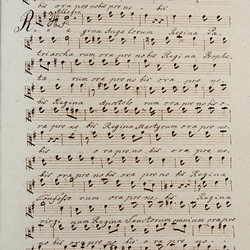 bis ora pro nobis pro no bis
Allegro
Re gina Angelorum Regina Pa
triarcha rum ora pro no bis Regina Prophe
ta rum ora pro no bis ora pro no
bis Regina Apostolo rum ora pro no bis o
ra pro no bis Regina Martyrum ora pro no
bis ora pro no bis ora pro no bis Regina
Confesso rum ora pro no bis Regina
virgi num Regina Sanctorum omnium ora pro
no bis ora pro no bis ora pro no